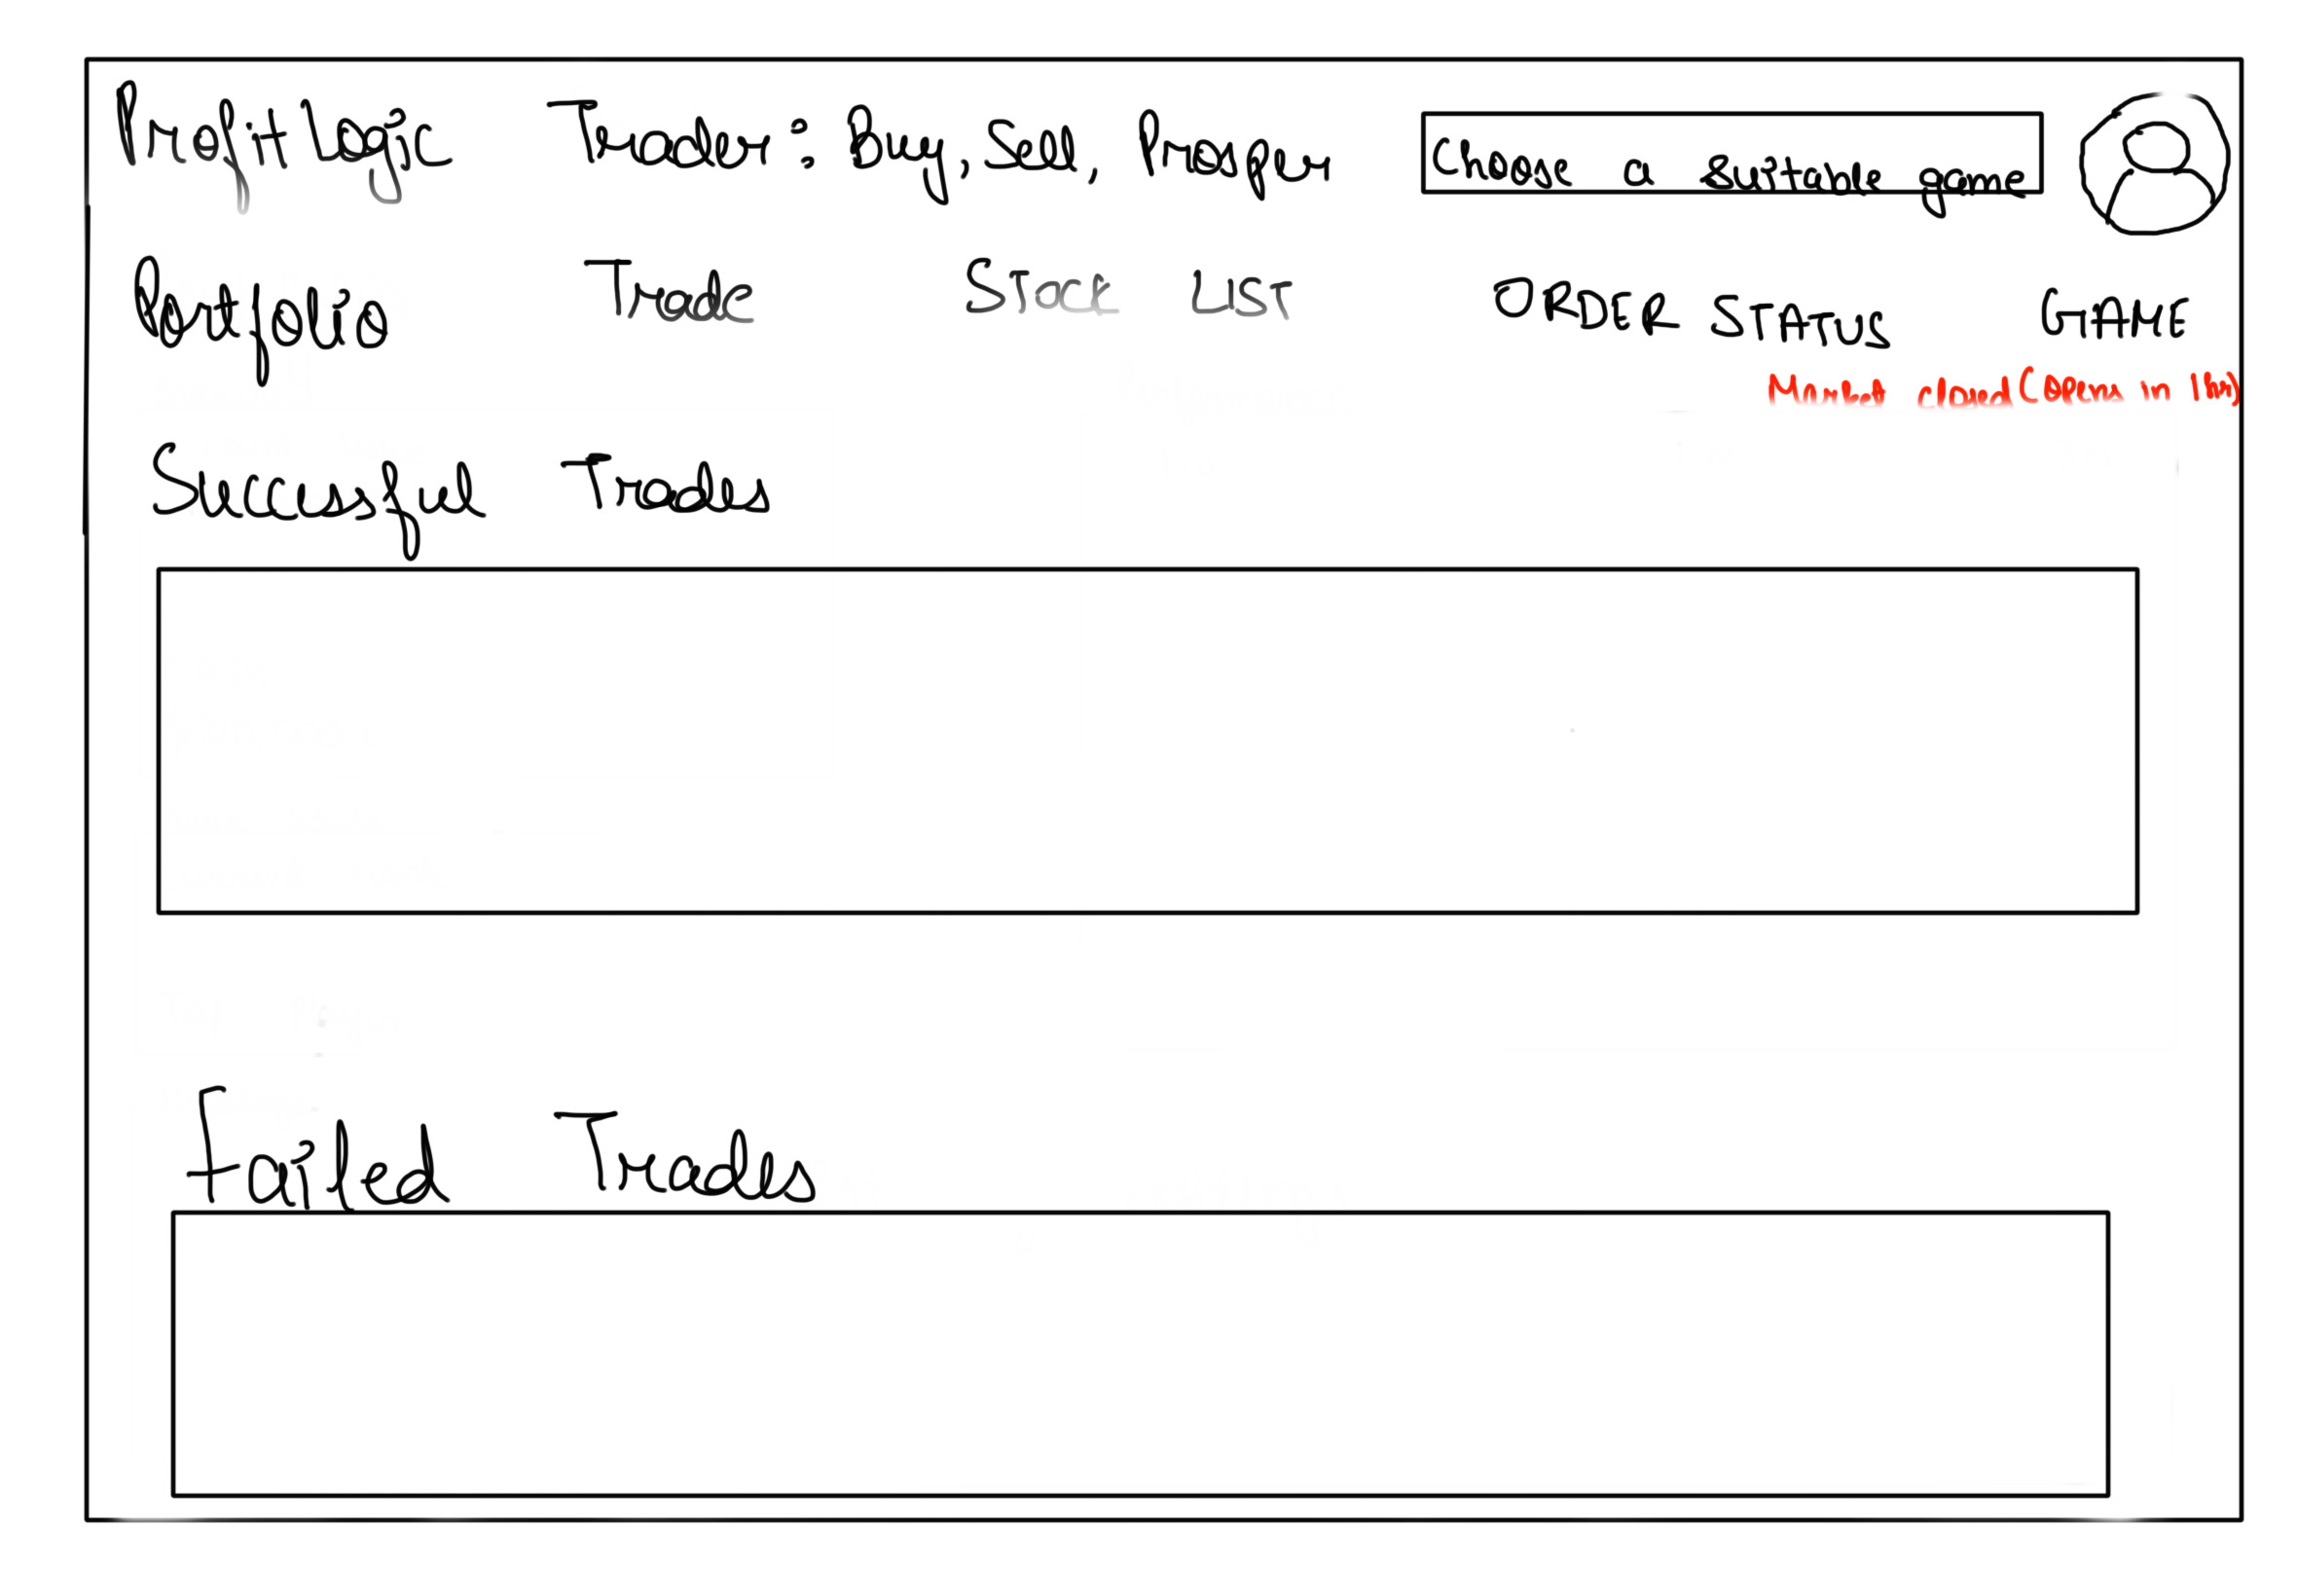 Profit Logic Trader: Buy, Sell, Prosper
Choose a suitable game
Portfolio Trade STOCK LIST ORDER STATUS GAME
Market closed (opens in 1hr)
Successful Trades
Failed Trades